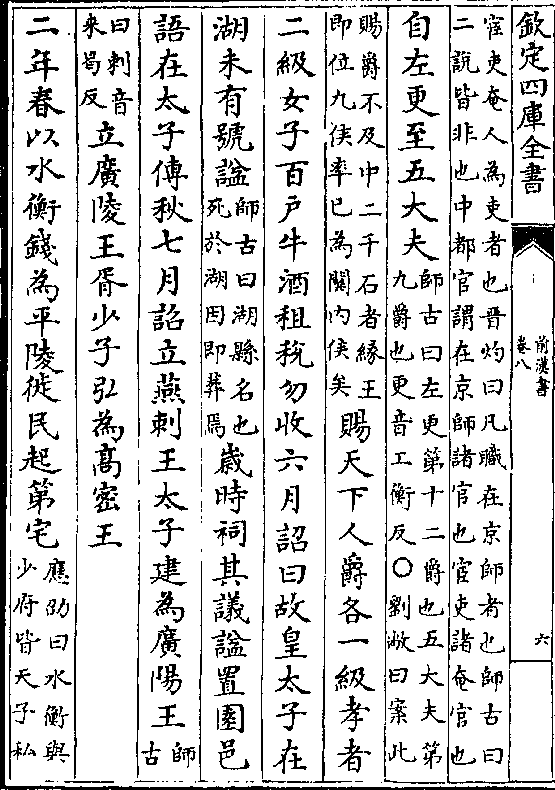 欽定四庫全書
前漢書
卷八
六
宦吏奄人為吏者也晋灼曰凡職在京師者也師古曰
二說皆非也中都官謂在京師諸官也宦吏諸奄官也
自左更至五大夫師古曰左更第十二爵也五大夫第
九爵也更音工衡反〇劉攽曰案此
賜爵不及中二千石者緣王
即位九侯率已為關内侯矣賜天下人爵各一級孝者
二級女子百户牛酒租税勿收六月詔曰故皇太子在
湖未有號諡師古曰湖縣名也
死於湖因即葬焉歲時祠其議諡置園邑
語在太子傳秋七月詔立燕刺王太子建為廣陽王師
古
曰刺音
來曷反立廣陵王胥少子弘為髙密王
二年春以水衡錢為平陵徙民起第宅應劭曰水衡與
少府皆天子私